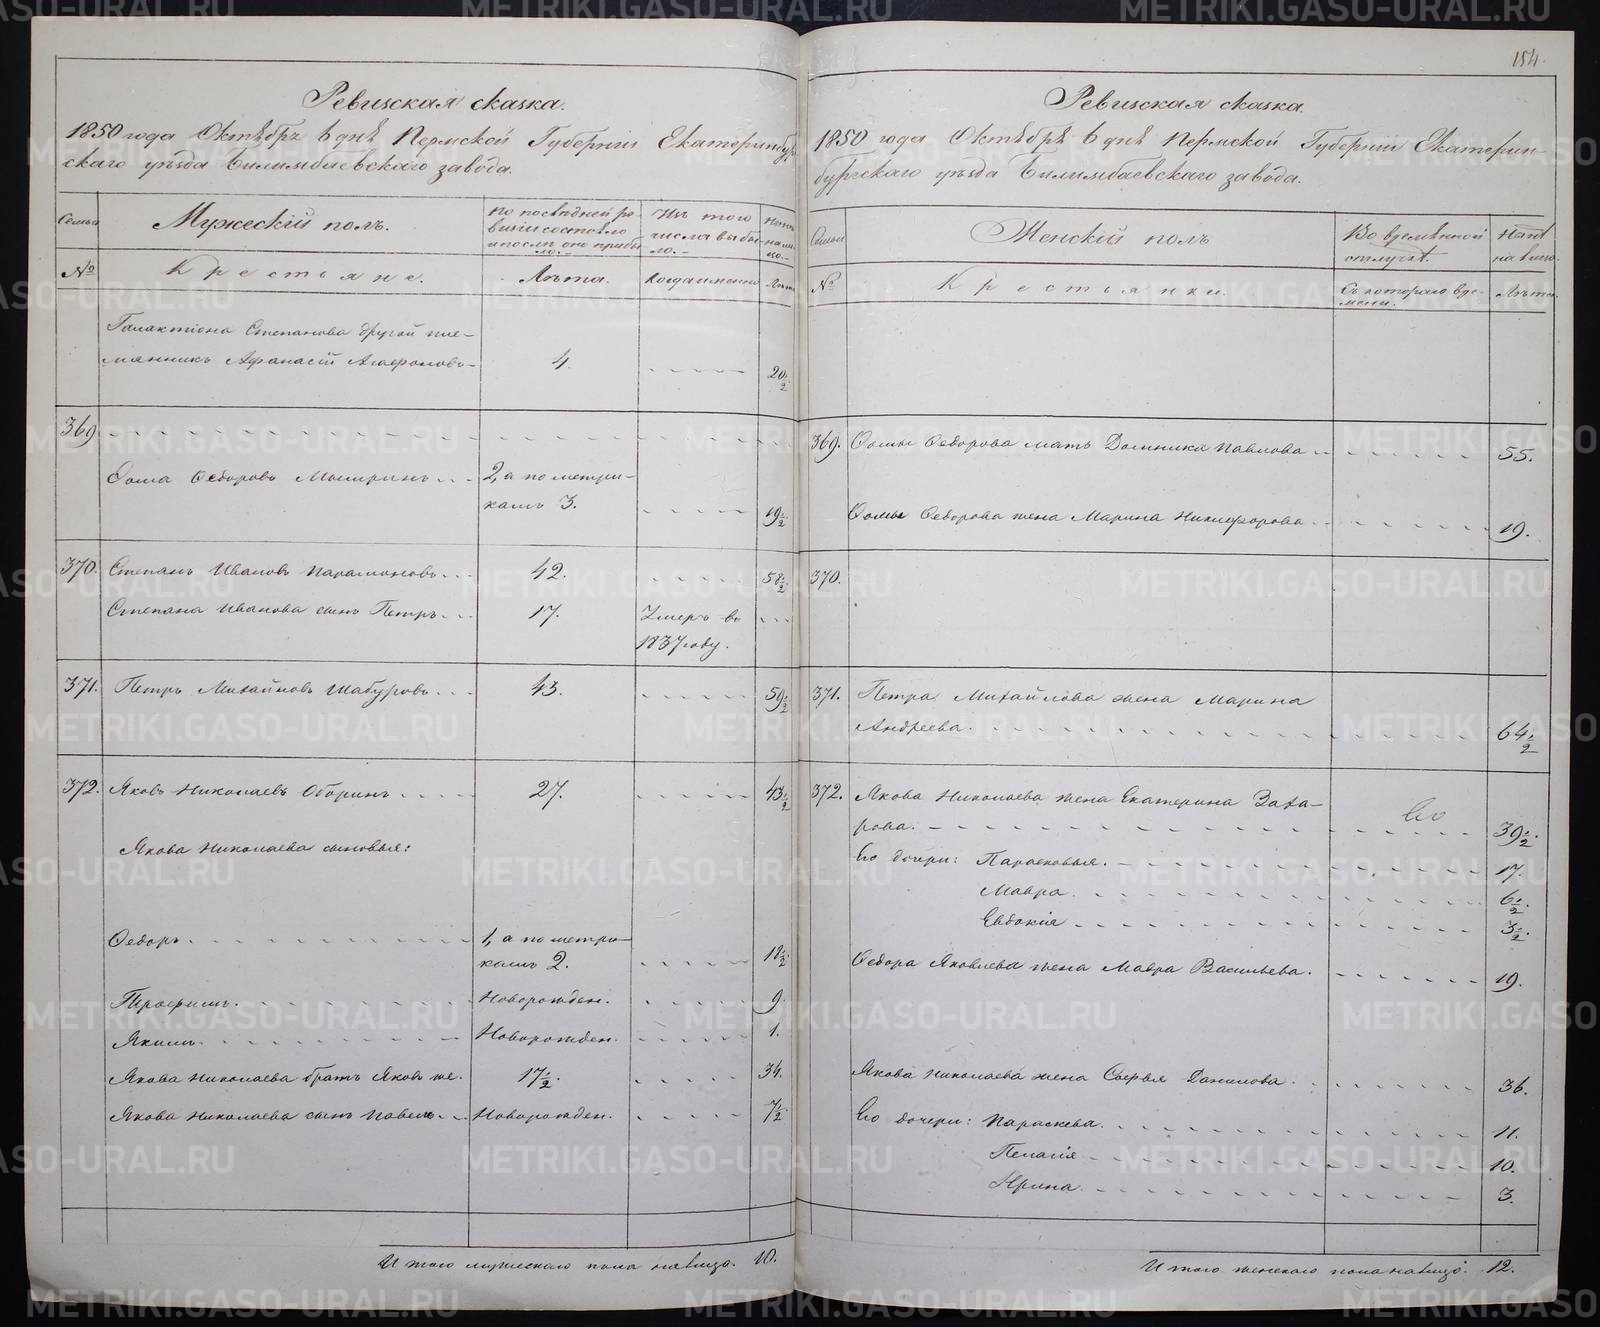 Ревизская сказка.
1850 года Октября 6 дня Пермской Губернии Екатеринбур-
скаго уѣзда Билимбаевскаго завода.
Семьи
Мужескій полъ.
По послѣдней ре-
визіи состояло
и послѣ оно прибы-
ло.
Изъ того
числа выбы-
ло.
Нынѣ
на ли-
цо.
№
Крестьяне.
Лѣта.
Когда именно
Лѣта
Галактіона Степанова другой пле-
мянникъ Афанасій Агафоновъ
4.
20 1/2
369
Ѳома Ѳедоровъ
2, а по метри-
камъ 3.
19 1/2
370. Степанъ Ивановъ Парамоновъ
42.
58 1/2
Степана Иванова сынъ Петръ
17.
Умеръ въ
1837 году.
371. Петръ Михайловъ Шабуровъ
43.
59 1/2
372. Яковъ Николаевъ Оборинъ
27.
43 1/2
Якова Николаева сыновья:
Ѳедоръ
1, а по метри-
камъ 2.
18 1/2
Трофимъ.
Новорожден.
9
Якимъ
Новорожден.
1.
Якова Николаева братъ Яковъ же.
17 1/2.
34.
Якова Николаева сынъ Павелъ
Новорожден.
7 1/2
Итого мужескаго пола налицо. 10.
184.
Ревизская сказка.
1850 года Октября 6 дня Пермской Губерніи Екатерин-
бургскаго уѣзда Билимбаевскаго завода.
Семьи
Женскій полъ
Во временной
отлучкѣ.
Нынѣ
на лицо.
№
Крестьянки.
Съ котораго вре-
мени.
Лѣта.
369. Ѳомы Ѳедорова мать Домника Павлова
55.
Ѳомы Ѳедорова жена Марина Никифорова
19.
370.
371. Петра Михайлова жена Марина
Андреева.
64 1/2
372. Якова Николаева жена Екатерина Заха-
рова.
Его
39 1/2.
Его дочери: Парасковья.
17.
Мавра.
6 1/2.
Евдокія
3 1/2.
Ѳедора Яковлева жена Мавра Васильева.
19.
Якова Николаева жена Софья Данилова.
36.
Его дочери: Параскева.
11.
Пелагія
10.
Ирина.
3.
Итого женскаго пола налицо. 12.
METRIKI.GASO-URAL.RU